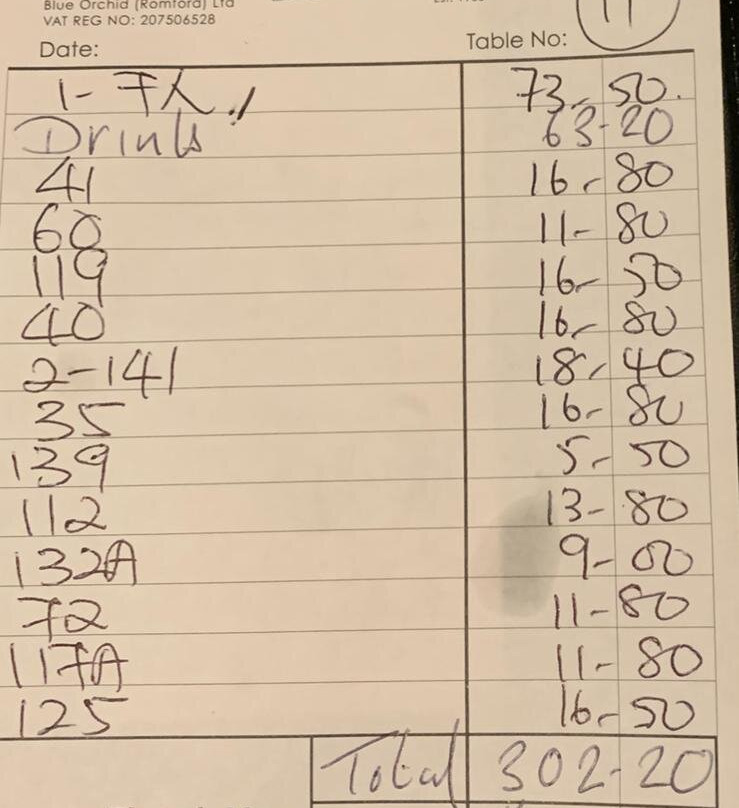 Blue Orchid (Romford) Ltd
VAT REG NO: 207506528
Date: Table No: 11
1- 7X 73-50.
Drinks 63-20
41 16-80
60 11-80
119 16-50
40 16-80
2-141 18-40
35 16-80
139 5-50
112 13-80
132A 9-00
72 11-80
117A 11-80
125 16-50
Total 302-20